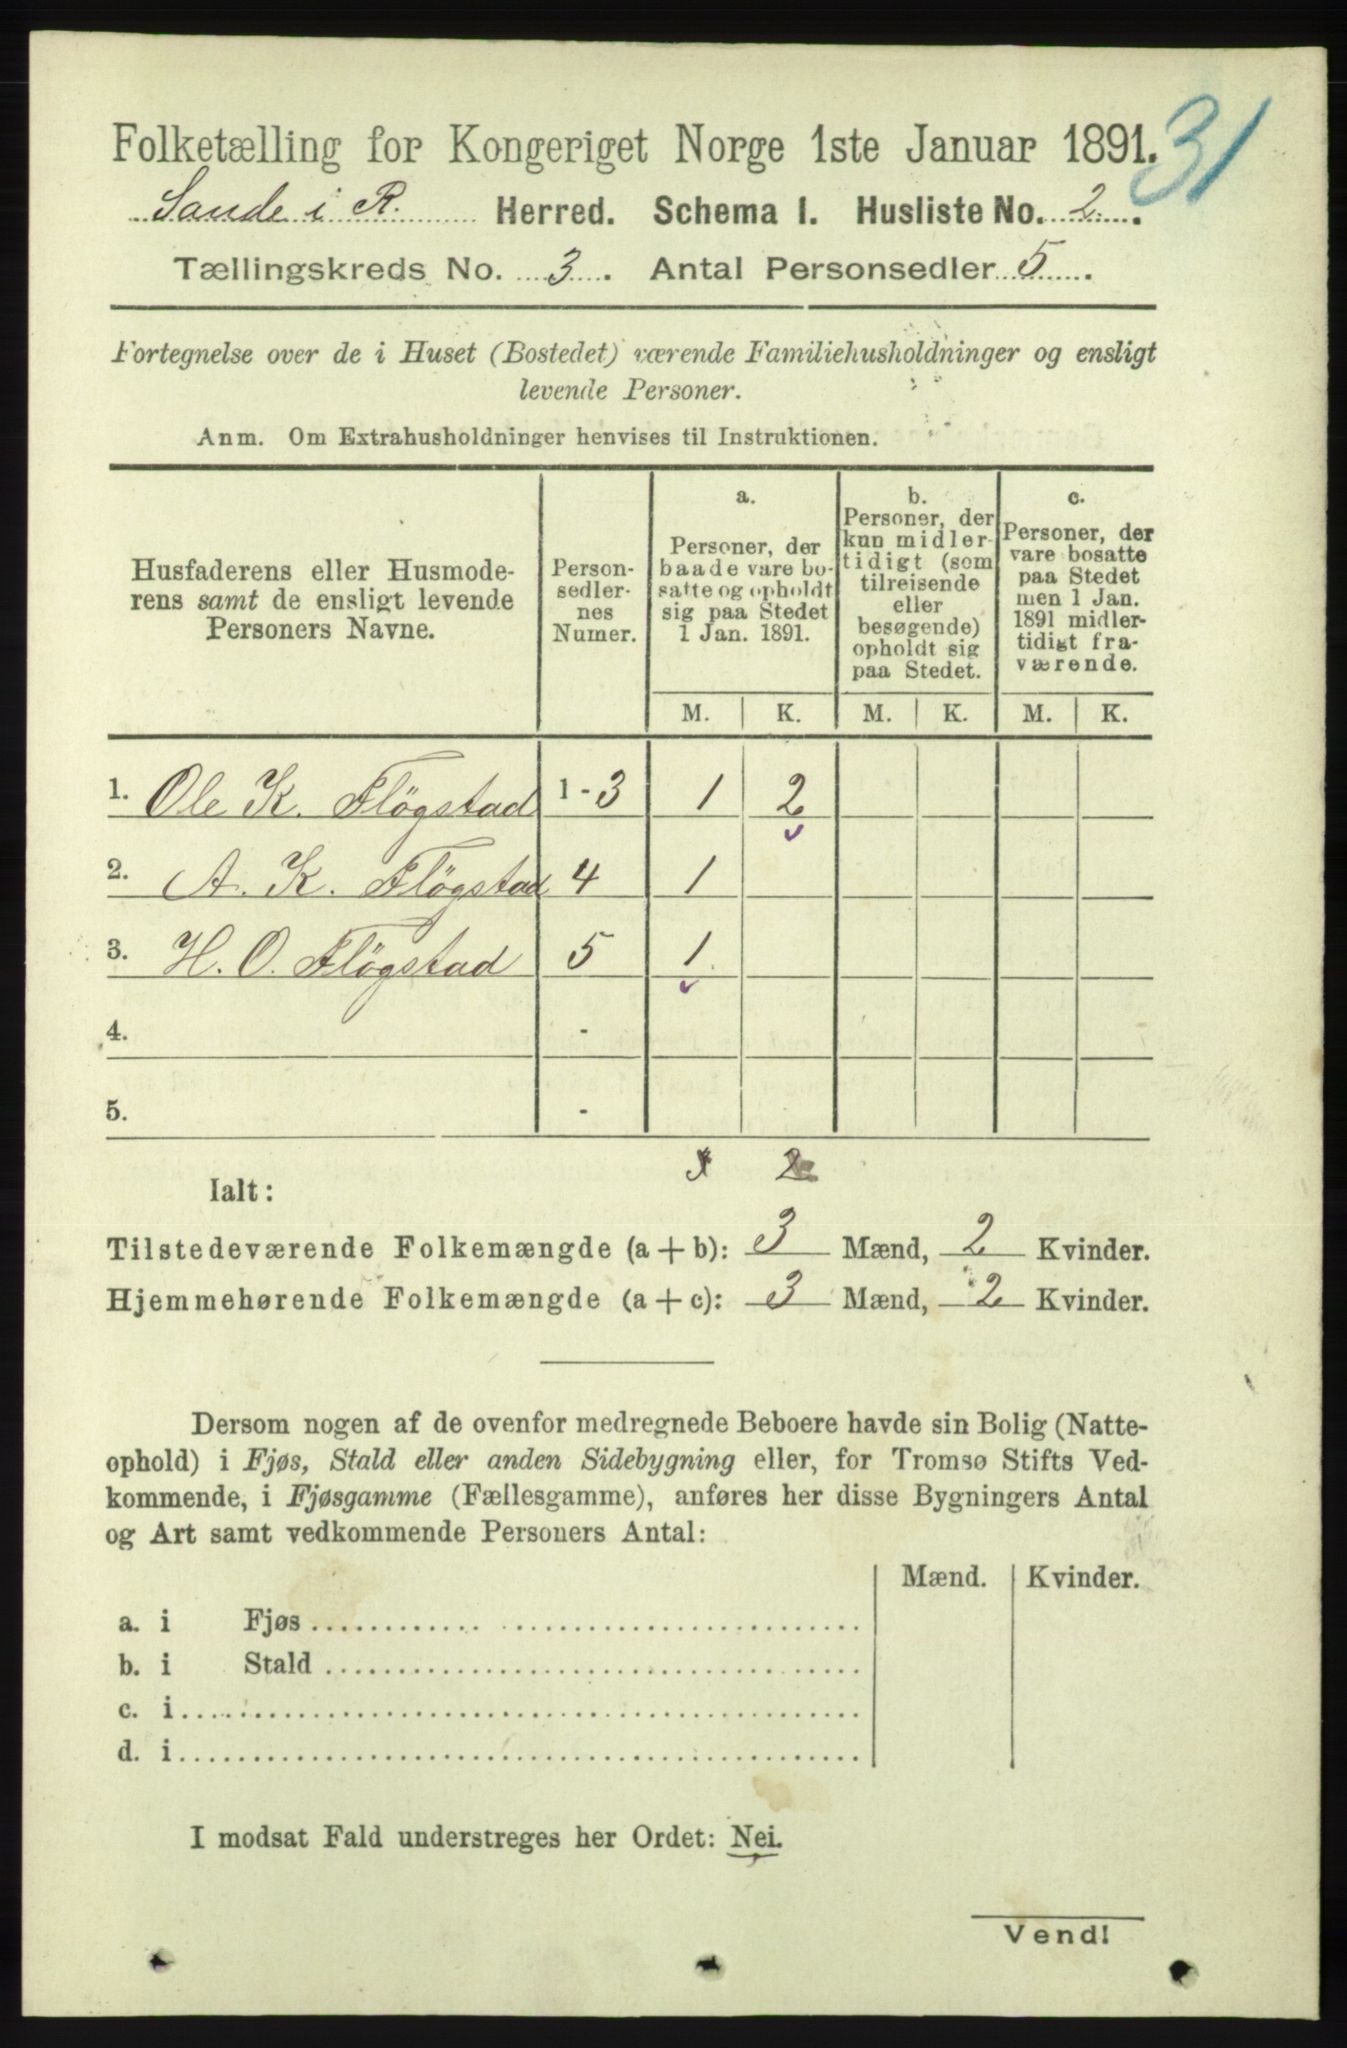 31
Folketælling for Kongeriget Norge 1ste Januar 1891.
Sande i R. Herred. Schema I. Husliste No. 2.
Tællingskreds No. 3. Antal Personsedler 5.
Fortegnelse over de i Huset (Bostedet) værende Familiehusholdninger og ensligt
levende Personer.
Anm. Om Extrahusholdninger henvises til Instruktionen.
Husfaderens eller Husmode-
rens samt de ensligt levende
Personers Navne.
Person-
sedler-
nes
Numer.
a.
Personer, der
baade vare bo-
satte og opholdt
sig paa Stedet
1 Jan. 1891.
b.
Personer, der
kun midler-
tidigt (som
tilreisende
eller
besøgende)
opholdt sig
paa Stedet.
c.
Personer, der
vare bosatte
paa Stedet
men 1 Jan.
1891 midler-
tidigt fra-
værende.
M. K. M. K. M. K.
1. Ole K. Flögstad 1-3 1 2
2. A. K. Flögstad 4 1
3. H. O. Flögstad 5 1
4. -
5. -
3 2
Ialt:
Tilstedeværende Folkemængde (a + b): 3 Mænd, 2 Kvinder.
Hjemmehørende Folkemængde (a + c): 3 Mænd, 2 Kvinder.
Dersom nogen af de ovenfor medregnede Beboere havde sin Bolig (Natte-
ophold) i Fjøs, Stald eller anden Sidebygning eller, for Tromsø Stifts Ved-
kommende, i Fjøsgamme (Fællesgamme), anføres her disse Bygningers Antal
og Art samt vedkommende Personers Antal:
Mænd. Kvinder.
a. i Fjøs
b. i Stald
c. i
d. i
I modsat Fald understreges her Ordet: Nei.
Vend!